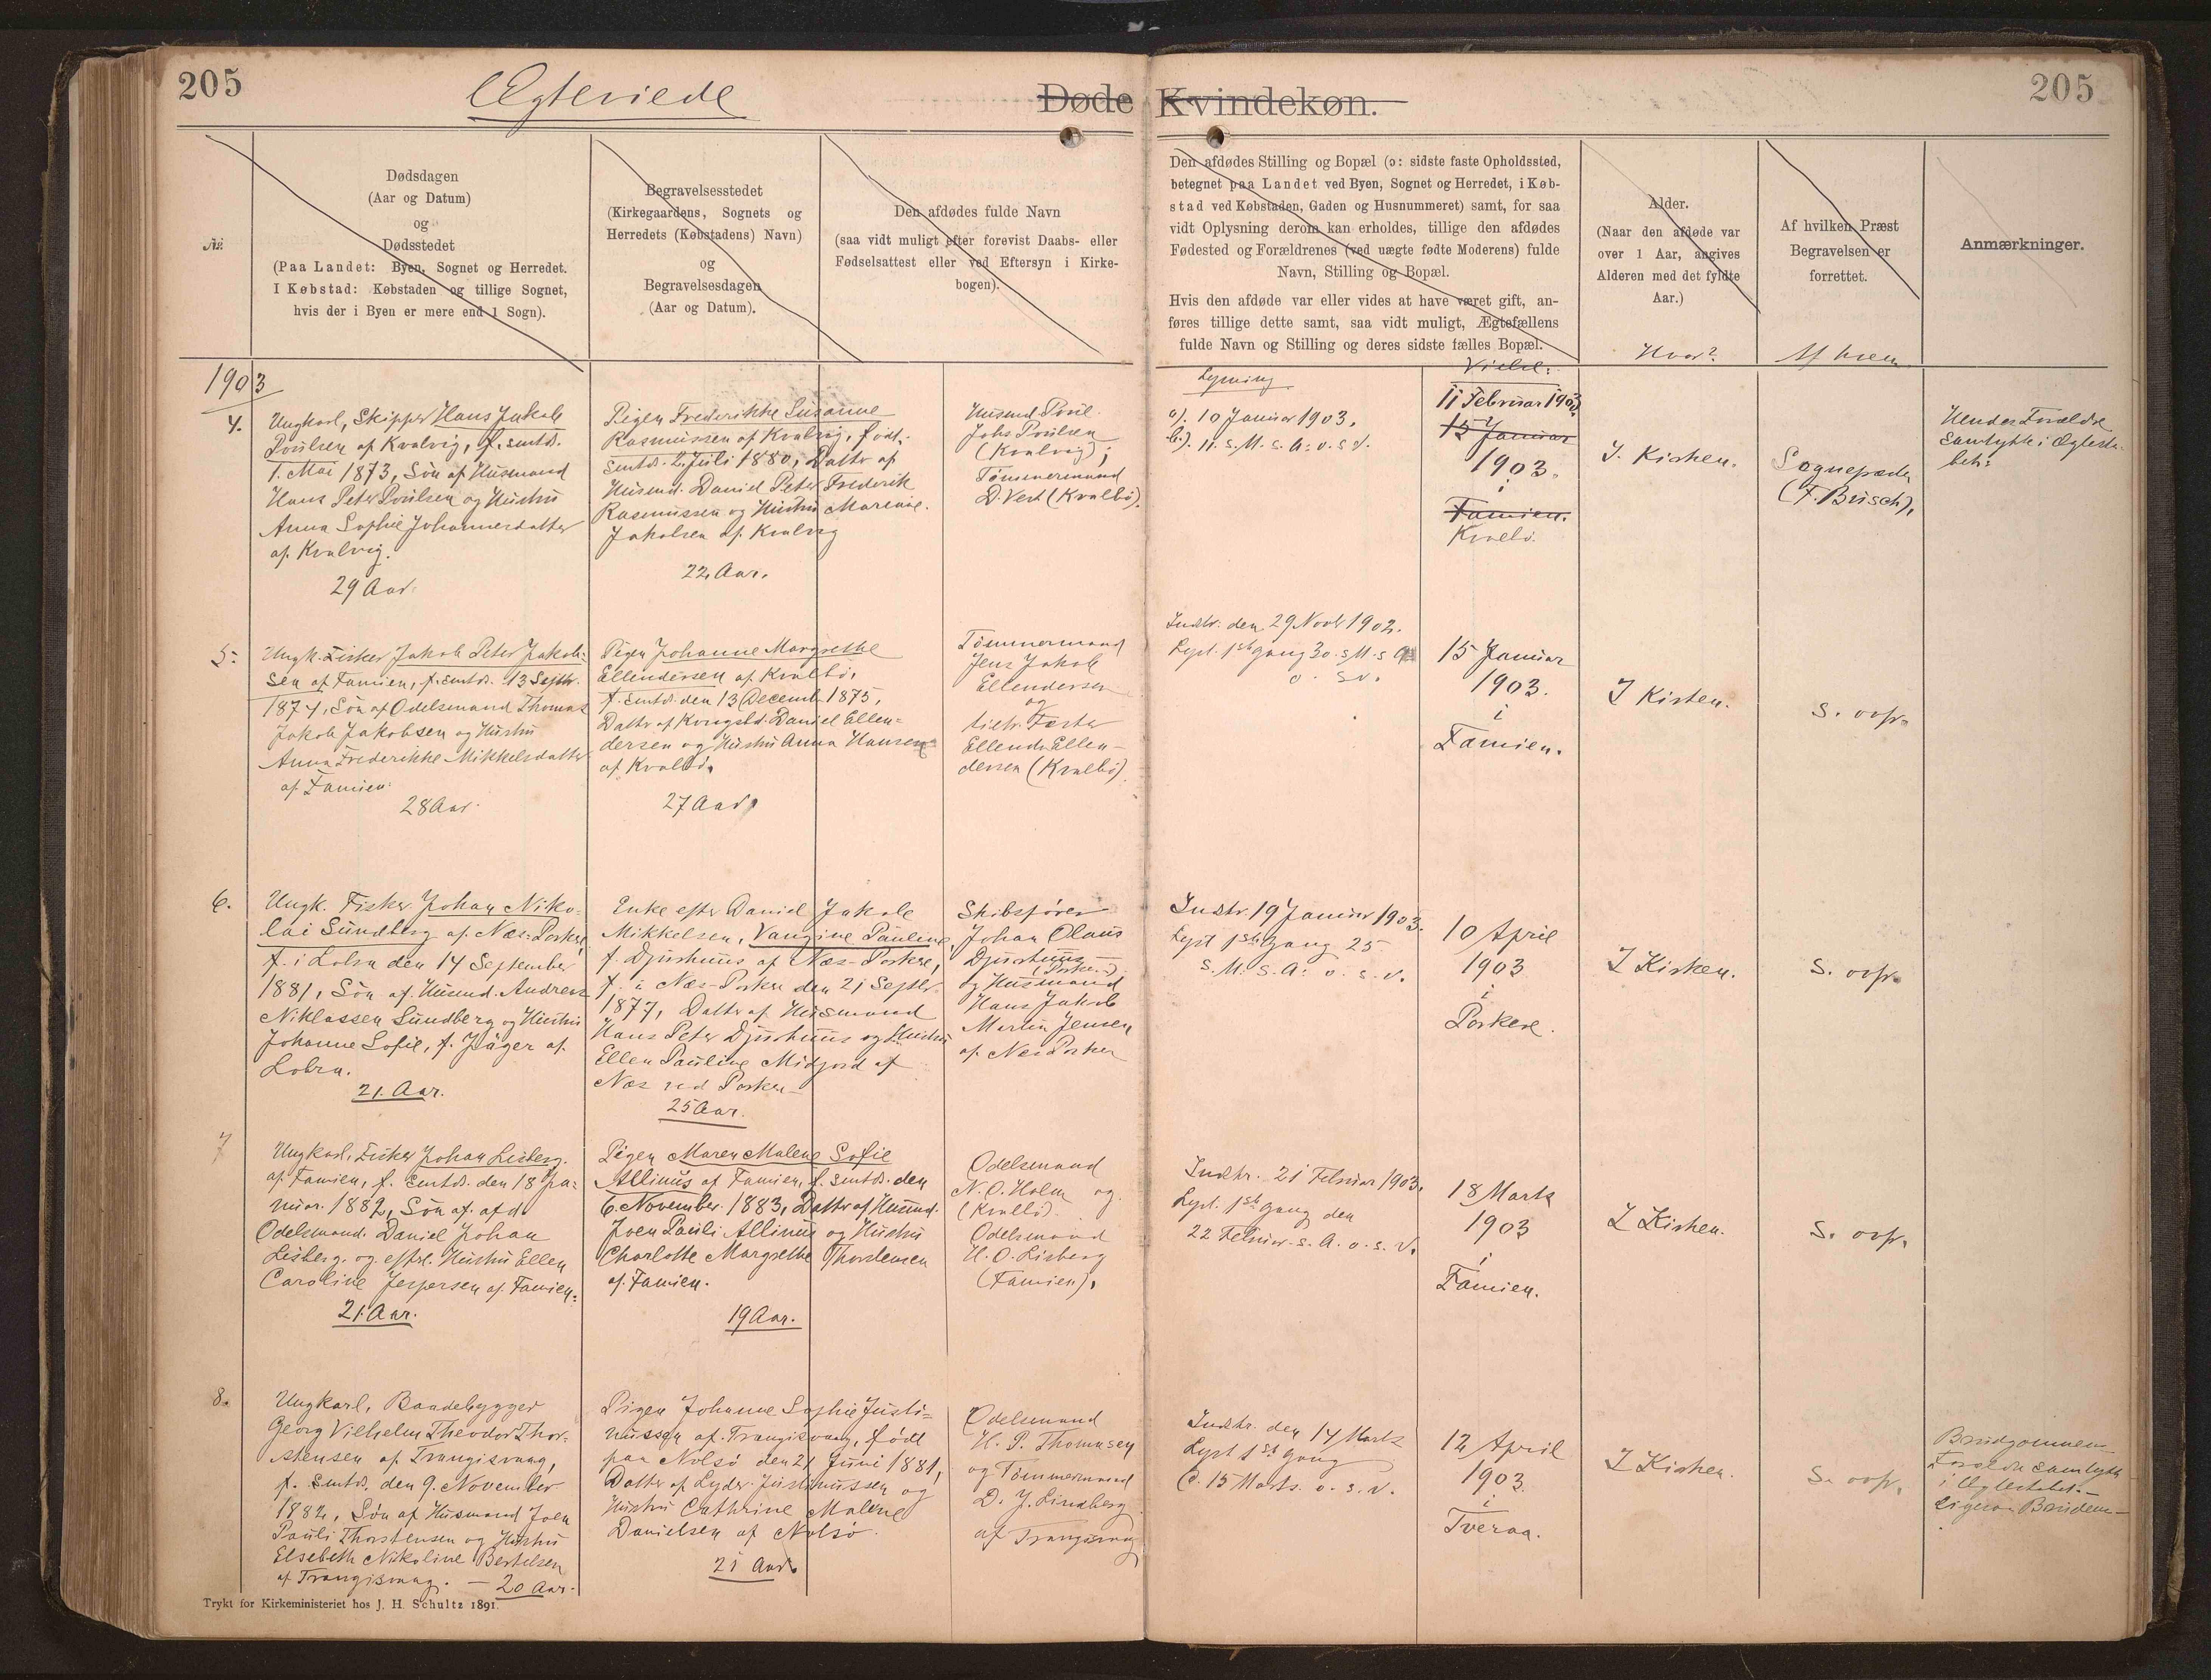 205
Ægteviede
Døde Kvindekøn.
205
№
Dødsdagen
(Aar og Datum)
og
Dødsstedet
(Paa Landet: Byen, Sognet og Herredet.
I Købstad: Købstaden og tillige Sognet,
hvis der i Byen er mere end 1 Sogn).
Begravelsesstedet
(Kirkegaardens, Sognets og
Herredets (Købstadens) Navn)
og
Begravelsesdagen
(Aar og Datum).
Den afdødes fulde Navn
(saa vidt muligt efter forevist Daabs- eller
Fødselsattest eller ved Eftersyn i Kirke-
bogen).
Den afdødes Stilling og Bopæl (ɔ: sidste faste Opholdssted,
betegnet paa Landet ved Byen, Sognet og Herredet, i Køb-
stad ved Købstaden, Gaden og Husnummeret) samt, for saa
vidt Oplysning derom kan erholdes, tillige den afdødes
Fødested og Forældrenes (ved uægte fødte Moderens) fulde
Navn, Stilling og Bopæl.
Hvis den afdøde var eller vides at have været gift, an-
føres tillige dette samt, saa vidt muligt, Ægtefællens
fulde Navn og Stilling og deres sidste fælles Bopæl.
Alder.
(Naar den afdøde var
over 1 Aar, angives
Alderen med det fyldte
Aar.)
Hvor?
Af hvilken Præst
Begravelsen er
forrettet.
Af hvem
Anmærkninger.
1903
4.
Ungkarl, Skipper Hans Jakob
Poulsen af Kvalvig, f. smtds.
1. Mai 1873, Søn af Husmand
Hans Peter Poulsen og Hustru
Anna Sophie Johannesdatter
af Kvalvig.
29 Aar.
Pigen Frederikke Susanne
Rasmussen af Kvalvig, født
smtds. 2. Juli 1880, Datter af
Husmd. Daniel Peter Frederik
Rasmussen og Hustru Marenne
Jakobsen af Kvalvig
22 Aar.
Husmd. Poul
Johs. Poulsen
(Kvalvig);
Tømmermand
D. Vest (Kvalbø).
Lysning
a). 10 Januar 1903.
b). 11. s. M. s. A: o. s. v.
Viet:
11 Februar 1903
15 Januar
1903.
i
Famien.
Kvalbø.
I. Kirken.
Sognepræsten
(F. Brisch).
Hendes Forældre
samtykke i Ægteska-
bet:
5.
Ungk. Fisker Jakob Peter Jakob-
sen af Famien, f. smtds. 13 Septbr.
1874, Søn af Odelsmand Thomas
Jakob Jakobsen og Hustru
Anna Frederikke Mikkelsdatter
af Famien.
28 Aar.
Pigen Johanne Margrethe
Ellendersen af Kvalbø,
f. smtds. den 13 Decemb. 1875,
Datter af Kongsbd. Daniel Ellen-
dersen og Hustru Anna Hansen
af Kvalbø.
27 Aar.
Tømmermand
Jens Jakob
Ellendersen
og
Ellends Ellen-
dersen (Kvalbø).
Indtr. den 29 Novbr 1902.
Lyst. 1ste gang 30. s. M. s. A.
o. s. v.
15 Januar
1903.
i
Famien.
I Kirken.
S. ovfr.
6.
Ungk. Fisker Johan Niko-
lai Sundberg af Næs-Porkere,
f. i Lobra den 14 September
1881, Søn af Husmd. Andreas
Niklassen Sundberg og Hustru
Johanne Sofie, f. Jäger af
Lobra.
21. Aar.
Enke efter Daniel Jakob
Mikkelsen, Vangine Pauline,
f. Djurhuus af Næs-Porkere,
f. i Næs-Porkere den 21 Septbr.
1877, Datter af Husmand
Hans Peter Djurhuus og Hustru
Ellen Pauline Midjord af
Næs ved Porkere
25 Aar.
Skibsfører
Johan Olaus
Djurhuus
(Porkere)
og Husmand
Hans Jakob
Martin Jensen
af Næs Porkere
Indtr. 19 Januar 1903.
Lyst 1ste Gang 25
s. M. s. A: o. s. v.
10 April
1903
i
Porkere.
I Kirken.
S. ovfr.
7
Ungkarl, Fisker Johan Lisberg
af Famien, f. smtds. den 18 Ja-
nuar 1882, Søn af afd.
Odelsmand Daniel Johan
Lisberg og efterl. Hustru Ellen
Caroline Jespersen af Famien.
21. Aar.
Pigen Maren Malene Sofie
Allinus af Famien, f. smtds. den
6. November 1883, Datter af Husmd.
Joen Pauli Allinus og Hustru
Charlotte Margrethe Thorstensen
af Famien.
19 Aar.
Odelsmand
N. O. Holm og
(Kvalbø).
Odelsmand
H. O. Lisberg
(Famien).
Indtr. 21 Februar 1903.
Lyst. 1ste Gang den
22 Februar s. A. o. s. v.
18 Marts
1903
i
Famien.
I Kirken.
S. ovfr.
8.
Ungkarl, Baadebygger
Georg Vilhelm Theodor Thor-
stensen af Trangisvaag,
f. smtds. den 9. November
1882, Søn af Husmand Joen
Pauli Thorstensen og Hustru
Elsebeth Nikoline Bertelsen
af Trangisvaag. — 20 Aar.
Pigen Johanne Sophie Justi-
nussen af Trangisvaag, født
paa Nolsø den 21 Juni 1881,
Datter af Lyder Justinussen og
Hustru Cathrine Malene
Danielsen af Nolsø.
21 Aar.
Odelsmand
H. P. Thomasen
og Tømmermand
D. J. Lindberg
af Trangisvaag
Indtr. den 14 Marts
Lyst 1ste gang
d. 15 Marts. o. s. v.
12 April
1903.
i
Tveraa.
I Kirken.
S. ovfr.
Brudgommens
Forældre samtykke
i Ægteskabet.—
Ligesaa Brudens—
Trykt for Kirkeministeriet hos J. H. Schultz 1891.